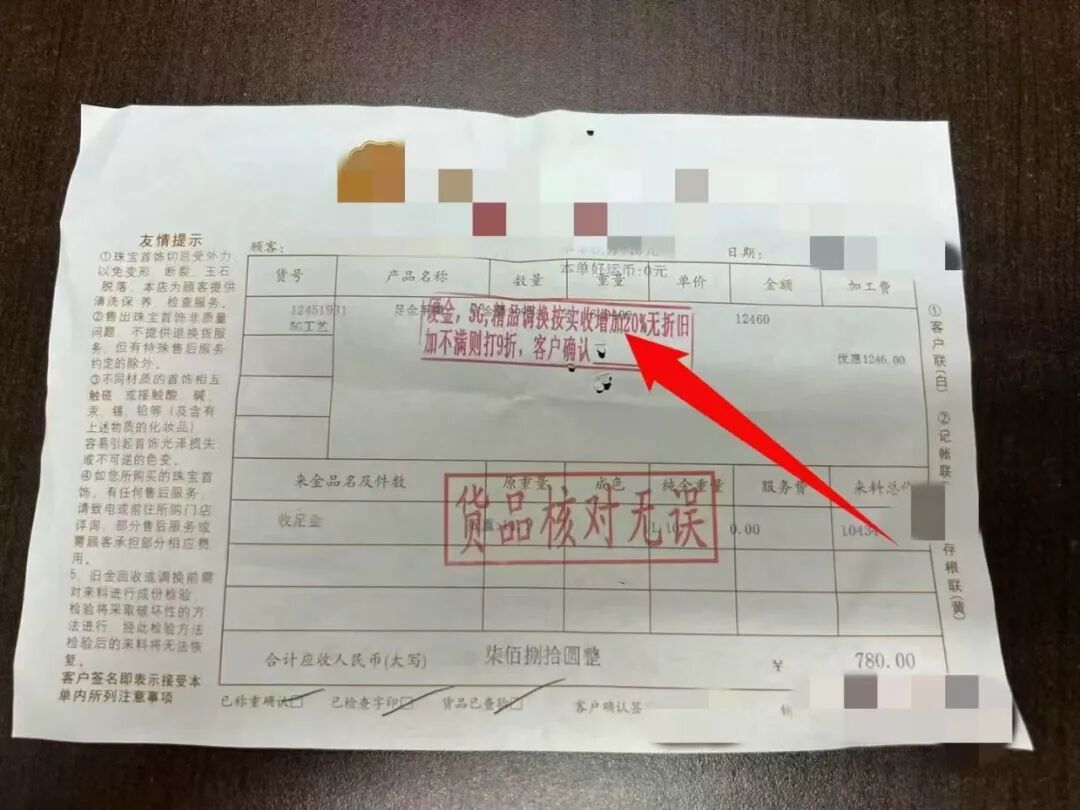 友情提示
①珠宝首饰切忌受外力
以免变形、断裂、玉石
脱落、本店为顾客提供
清洗保养、检查服务。
②售出珠宝首饰非质量
问题，不提供退换货服
务，但有特殊售后服务
约定的除外。
③不同材质的首饰相互
触碰 或接触酸、碱、
汞、锡、铅等（及含有
上述物质的化妆品）
容易引起首饰光泽损失、
或不可逆的色变。
④如您所购买的珠宝首
饰，有任何售后服务，
请致电或前往所购门店
详询，部分售后服务或
需顾客承担部分相应费
用。
5、旧金回收或调换前需
对来料进行成份检验，
检验将采取破坏性的方
法进行，经此检验方法
检验后的来料将无法恢
复。
客户签名即表示接受本
单内所列注意事项
顾客：
日期：
本单好运币:0元
货号 产品名称 数量 重量 单价 金额 加工费
12451931 足金 12460
5G工艺
金，5G,精品调换按实收增加20%无折旧
加不满则打9折，客户确认
优惠1246.00
来金品名及件数 原重量 成色 纯金重量 服务费 来料总价
收足金 0.00 10434
货品核对无误
合计应收人民币(大写) 柒佰捌拾圆整 ¥ 780.00
已称重确认 已检查字印 货品已查验 客户确认签
①客户联(白) ②记帐联
存根联(黄)